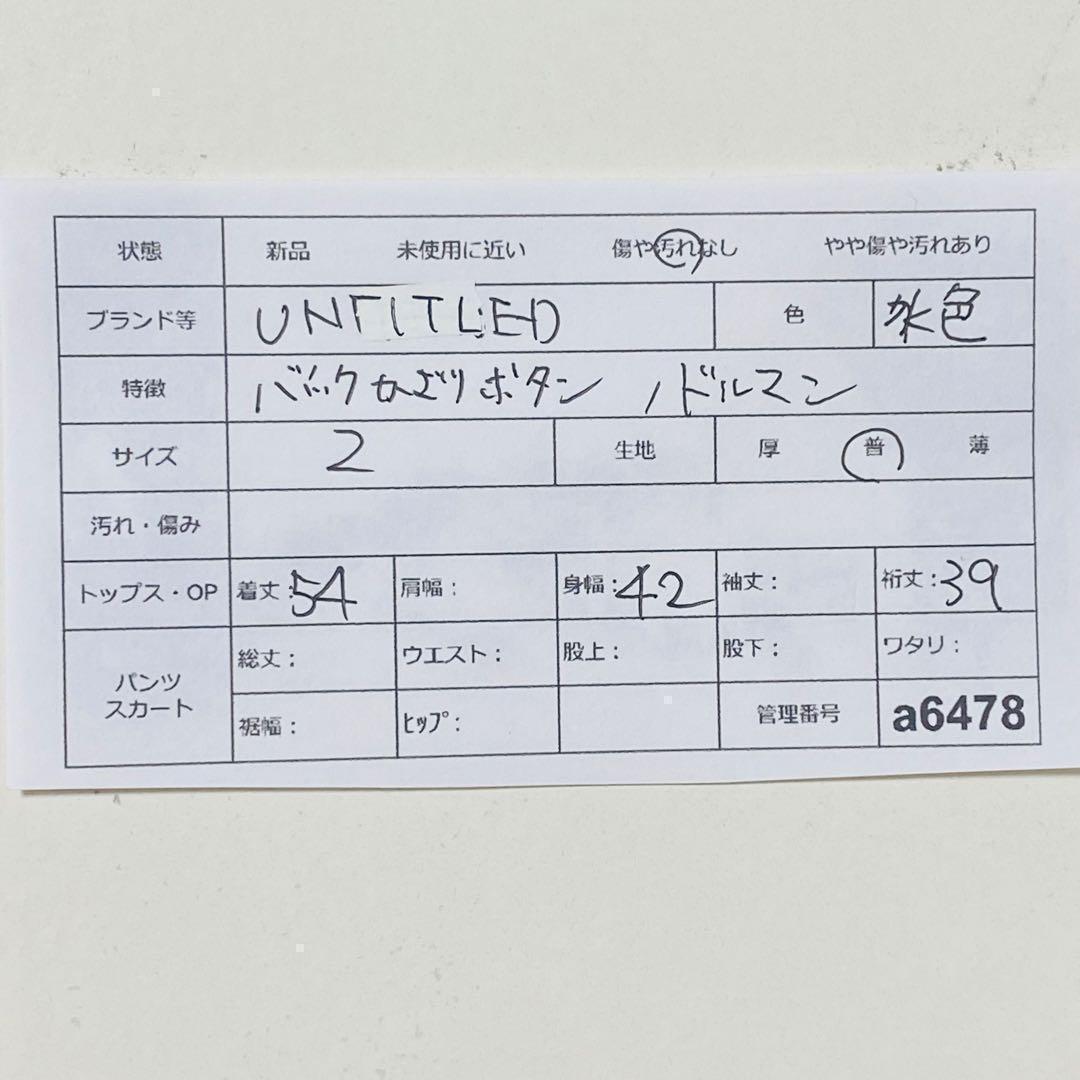 状態 新品 未使用に近い 傷や汚れなし やや傷や汚れあり
ブランド等 UNTITLED 色 水色
特徴 バックかざりボタン ドルマン
サイズ 2 生地 厚 普 薄
汚れ・傷み
トップス・OP 着丈:54 肩幅: 身幅:42 袖丈: 裄丈:39
パンツ スカート 総丈: ウエスト: 股上: 股下: ワタリ:
裾幅: ヒップ: 管理番号 a6478